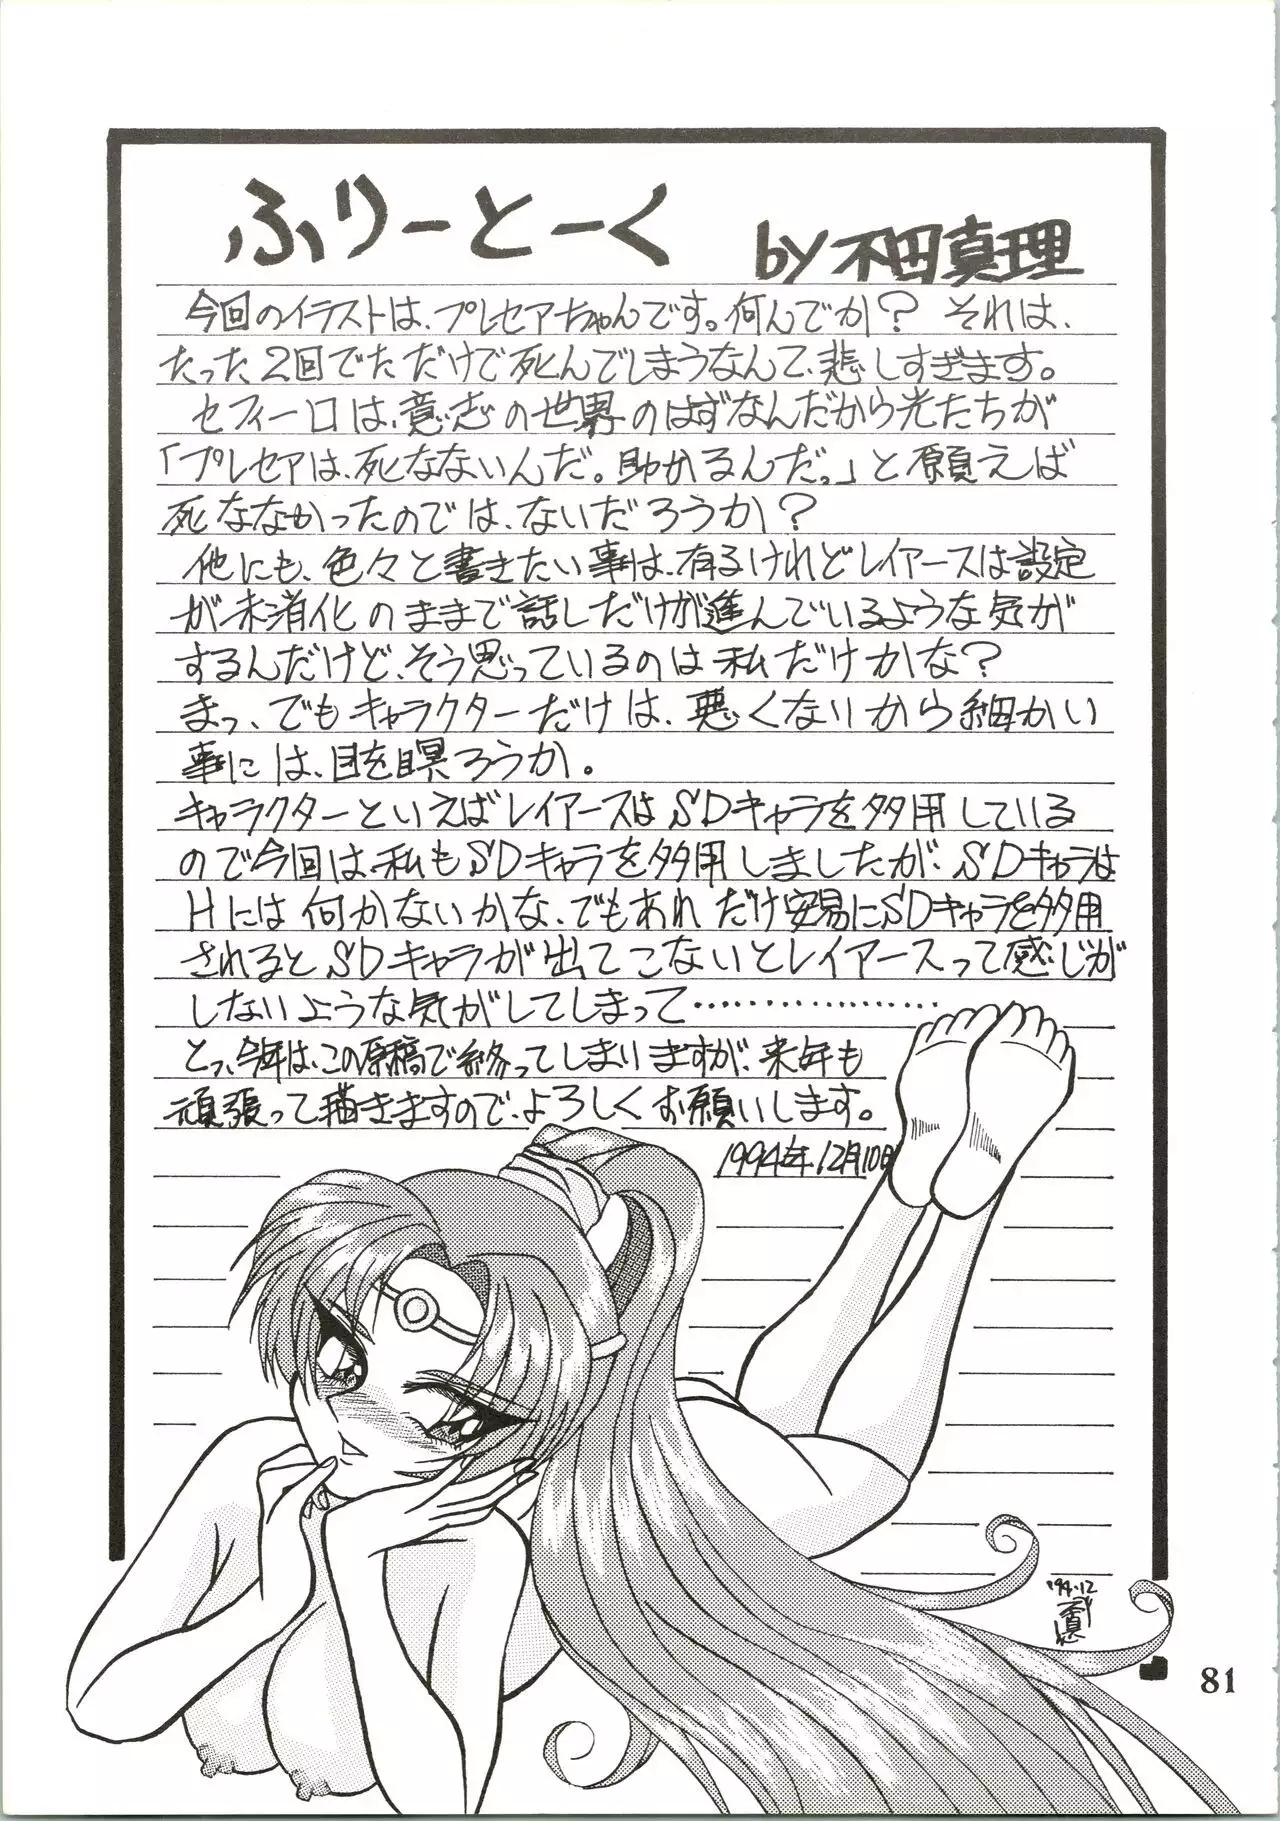 ふりーとーく
by 不田真理
今回のイラストは、プレセアちゃんです。何んでか？ それは、
たった2回でただけで死んでしまうなんて、悲しすぎます。
セフィーロは、意志の世界のはずなんだから光たちが
「プレセアは、死なないんだ。助かるんだっ。」と願えば
死ななかったのでは、ないだろうか？
他にも、色々と書きたい事は、有るけれどレイアースは設定
が未消化のままで話しだけが進んでいるような気が
するんだけど、そう思っているのは私だけかな？
まっ、でもキャラクターだけは、悪くないから細かい
事には、目を瞑ろうか。
キャラクターといえばレイアースはSDキャラを多用している
ので今回は、私もSDキャラを多用しましたが、SDキャラは
Hには向かないかな、でもあれだけ安易にSDキャラを多用
されるとSDキャラが出てこないとレイアースって感じが
しないような気がしてしまって………………
とっ、今年は、この原稿で終ってしまいますが、来年も
頑張って描きますので、よろしくお願いします。
1994年12月10日
'94.12
81